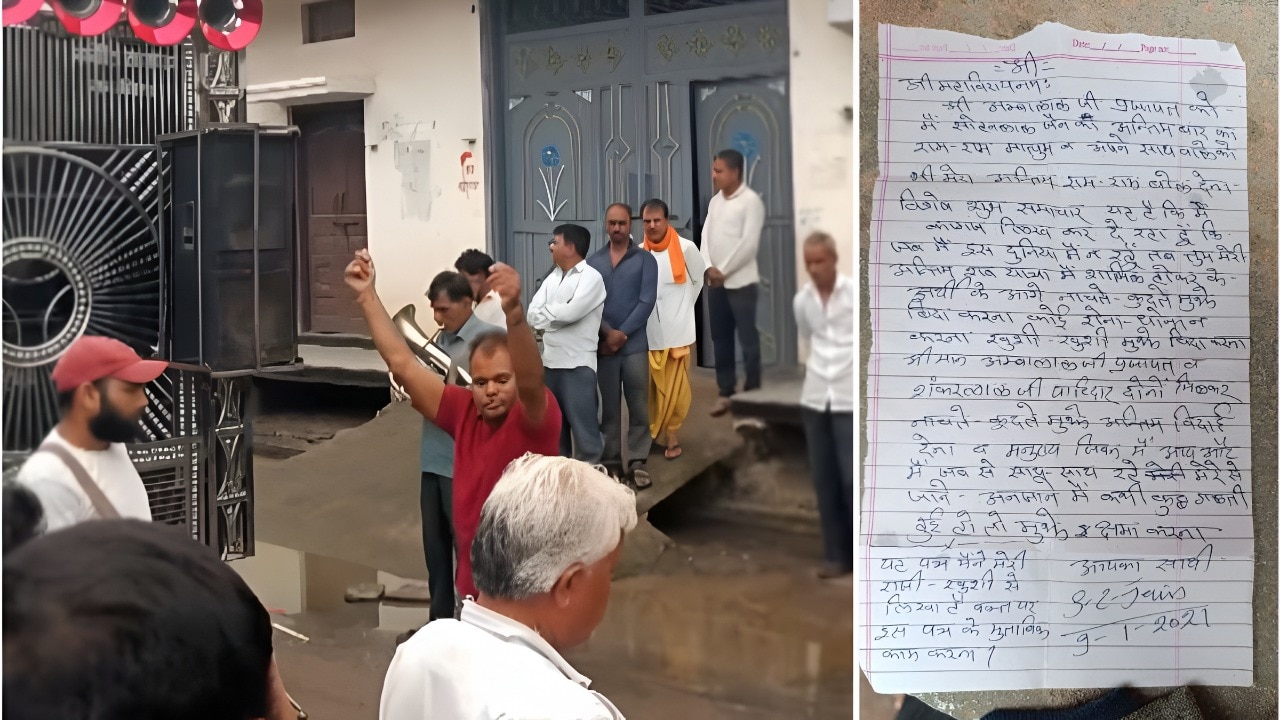 Date: / / Page no:
= श्री =
श्री महाविरायनम:
श्री अम्बालाल जी प्रजापत को
मैं सोहनलाल जैन की अन्तिम बार का
राम-राम मालुम व अपने साथ वालो को
भी मेरा अन्तिम राम-राम बोल देना-
विशेष शुभ समाचार यह है कि मैं
कागज लिख कर दे रहा हूँ कि
जब मैं इस दुनिया में न रहूँ तब तुम मेरी
अन्तिम शव यात्रा में शामिल होकर के
अर्थी के आगे नाचते-कूदते मुझे
विदा करना कोई रोना-धोना न
करना खुशी-खुशी मुझे विदा करना
श्रीमान अम्बालाल जी प्रजापत व
शंकरलाल जी पाटिदार दोनों मिलकर
नाचते-कूदते मुझे अन्तिम विदाई
देना व मनुष्य लोक में आप और
मैं जब से साथ-साथ रहे मेरे से
जाने-अनजाने में कभी कुछ गलती
हुई हो तो मुझे क्षमा करना
यह पत्र मैंने मेरी
राजी-खुशी से
लिखा है वक्त पर
इस पत्र के मुताबिक
काम करना।
आपका साथी
S.L. Jain
9-1-2021